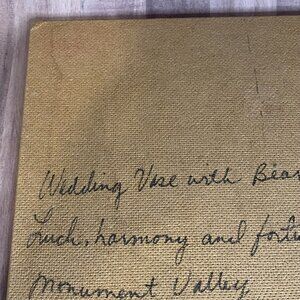 Wedding Vase with Bear
Luck, harmony and fortu
Monument Valley